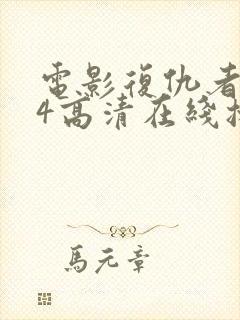 電影復仇者
4高清在綫
馬元章